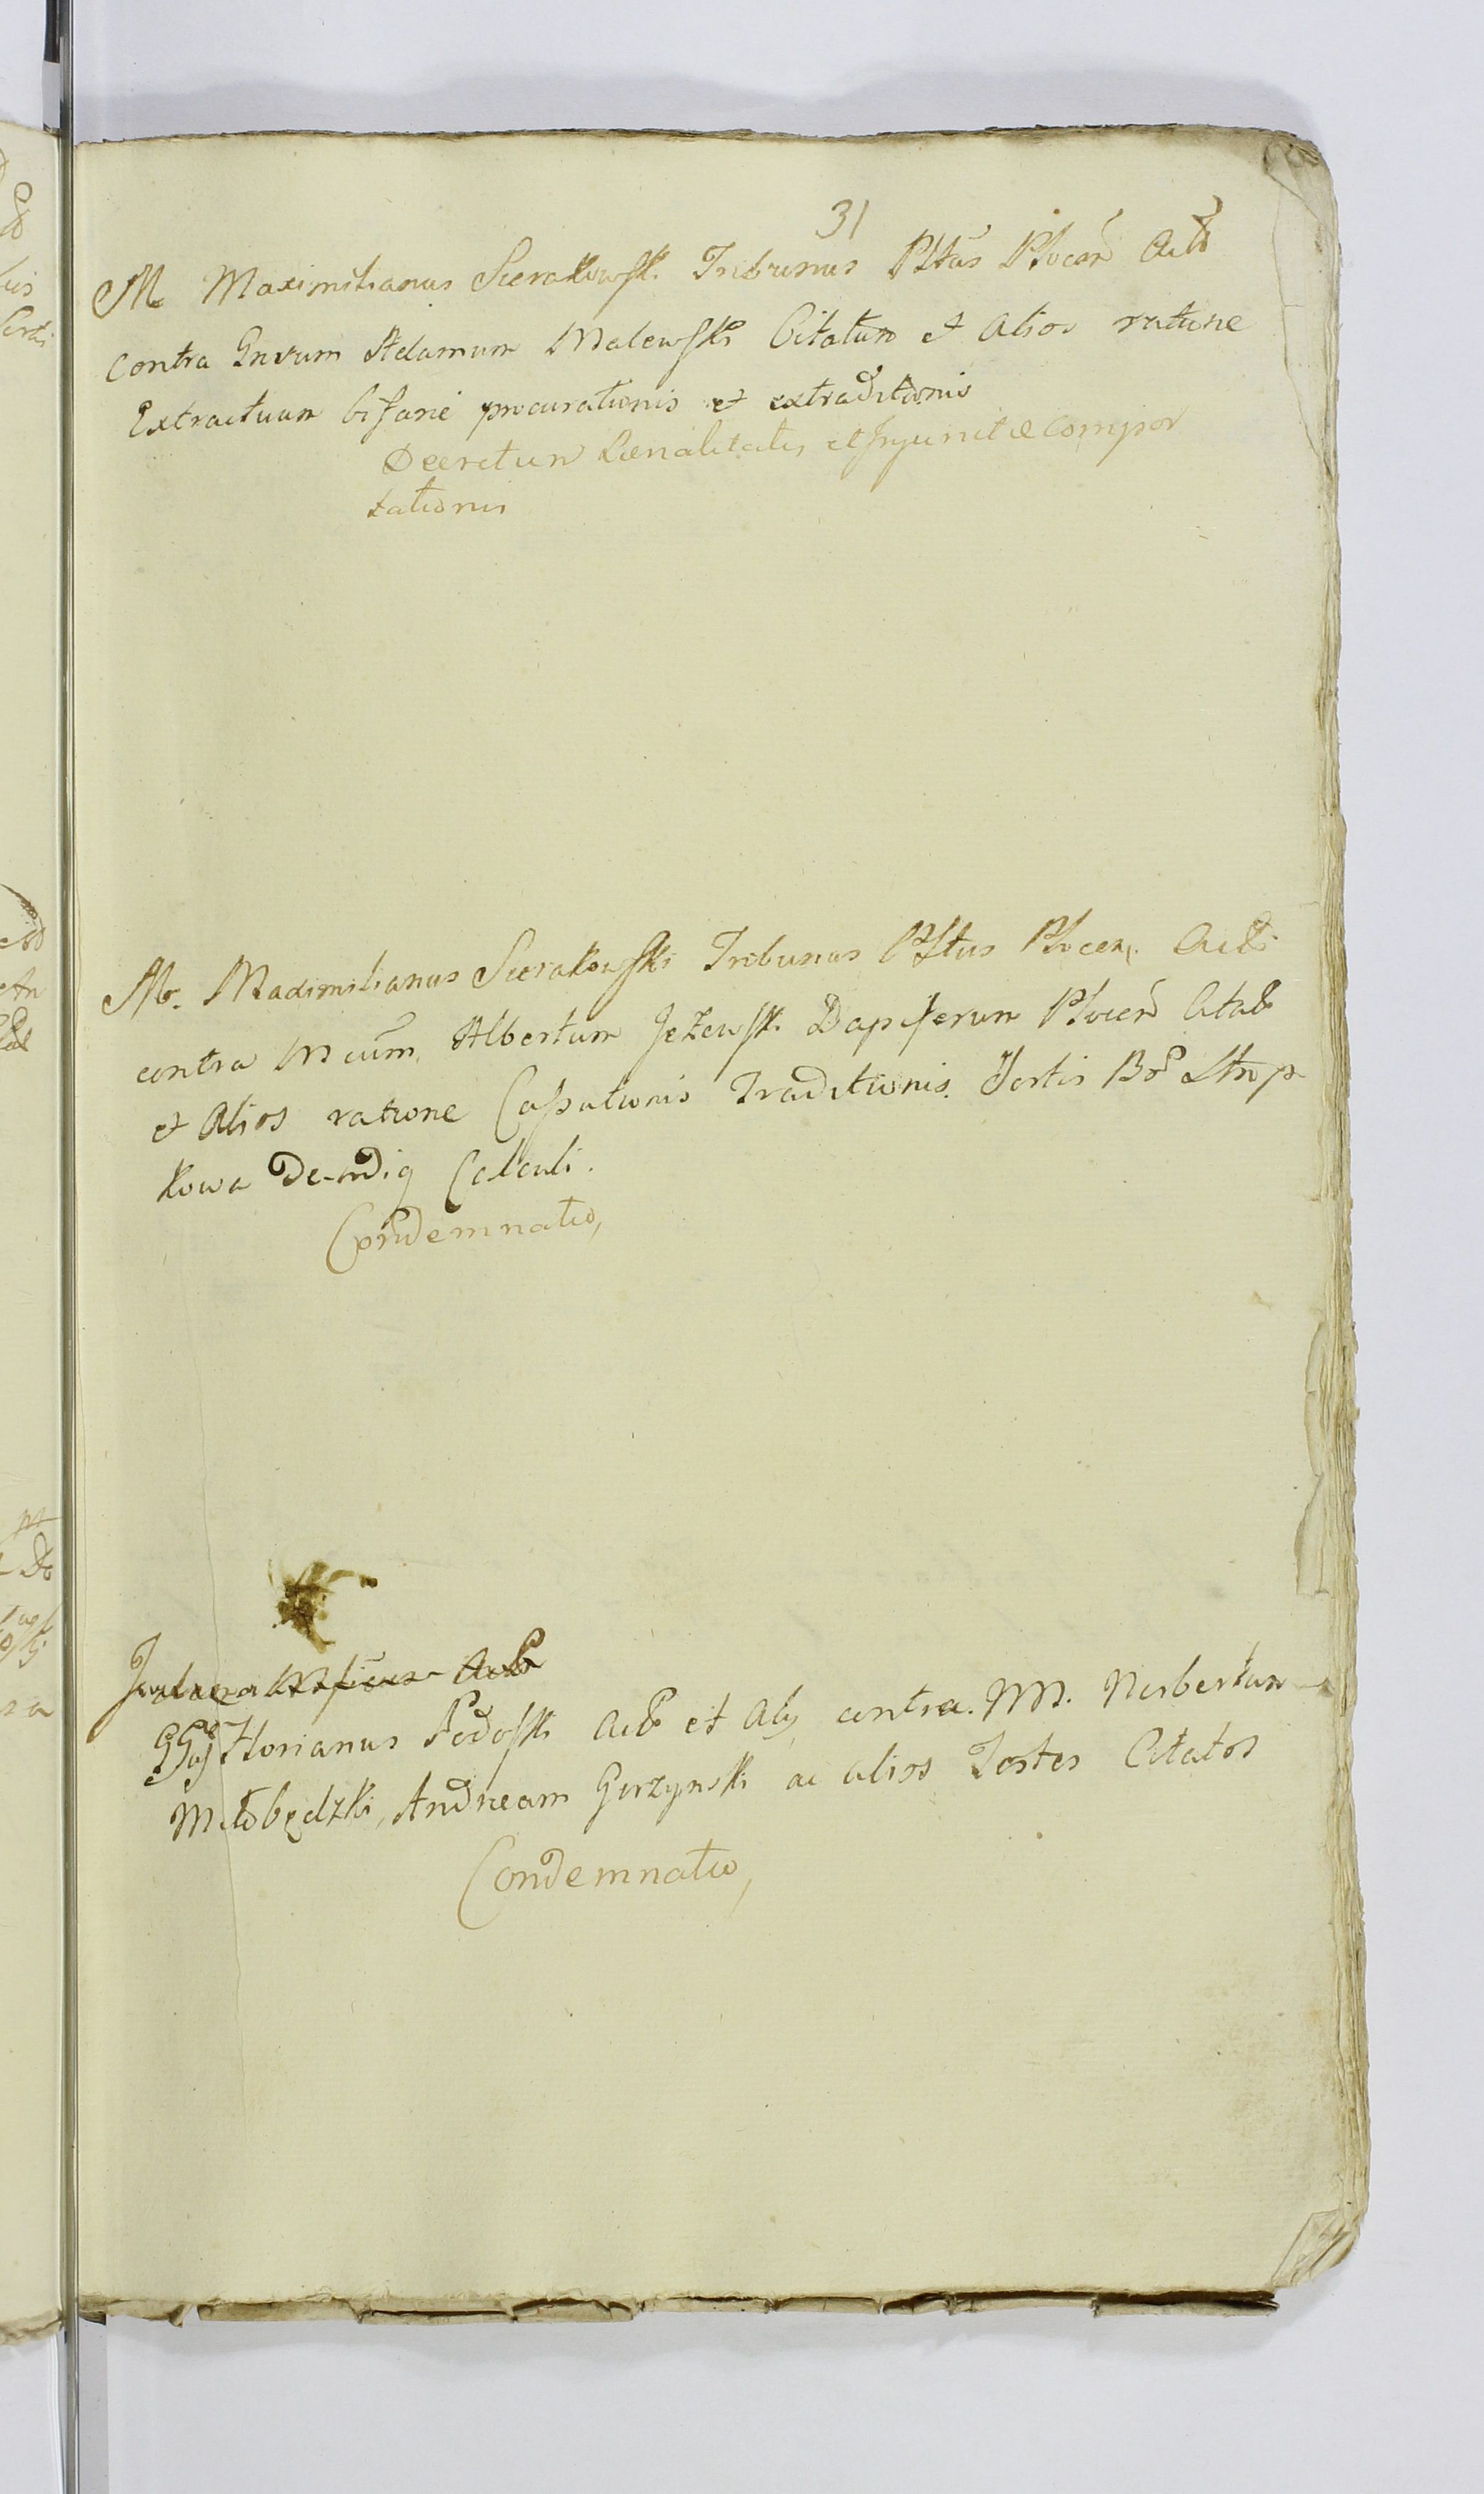 31
M Maximilianus Sierakowski Tribunus Pltūs Plocen Actor
contra Gnrum Adamum Malewski Citatum et Alios ratione
Extractuum bifarie procurationis et extraditionis
Decretum Paenalitatis et Injunctae Compor
tationis
M. Maximilianus Sierakowski Tribunus Pltus Plocen. Actor
contra Mcūm Albertum Jeżewski Dapiferum Plocen Citat
et Alios ratione Cassationis Traditionis Sortis
kowa Calculi.
Condemnatio,
Florianus Podoski Act et Alij contra. M. Norbertum
Miłobędzki, Andream Gurzynski ac alios Testes Citatos
Condemnatio,